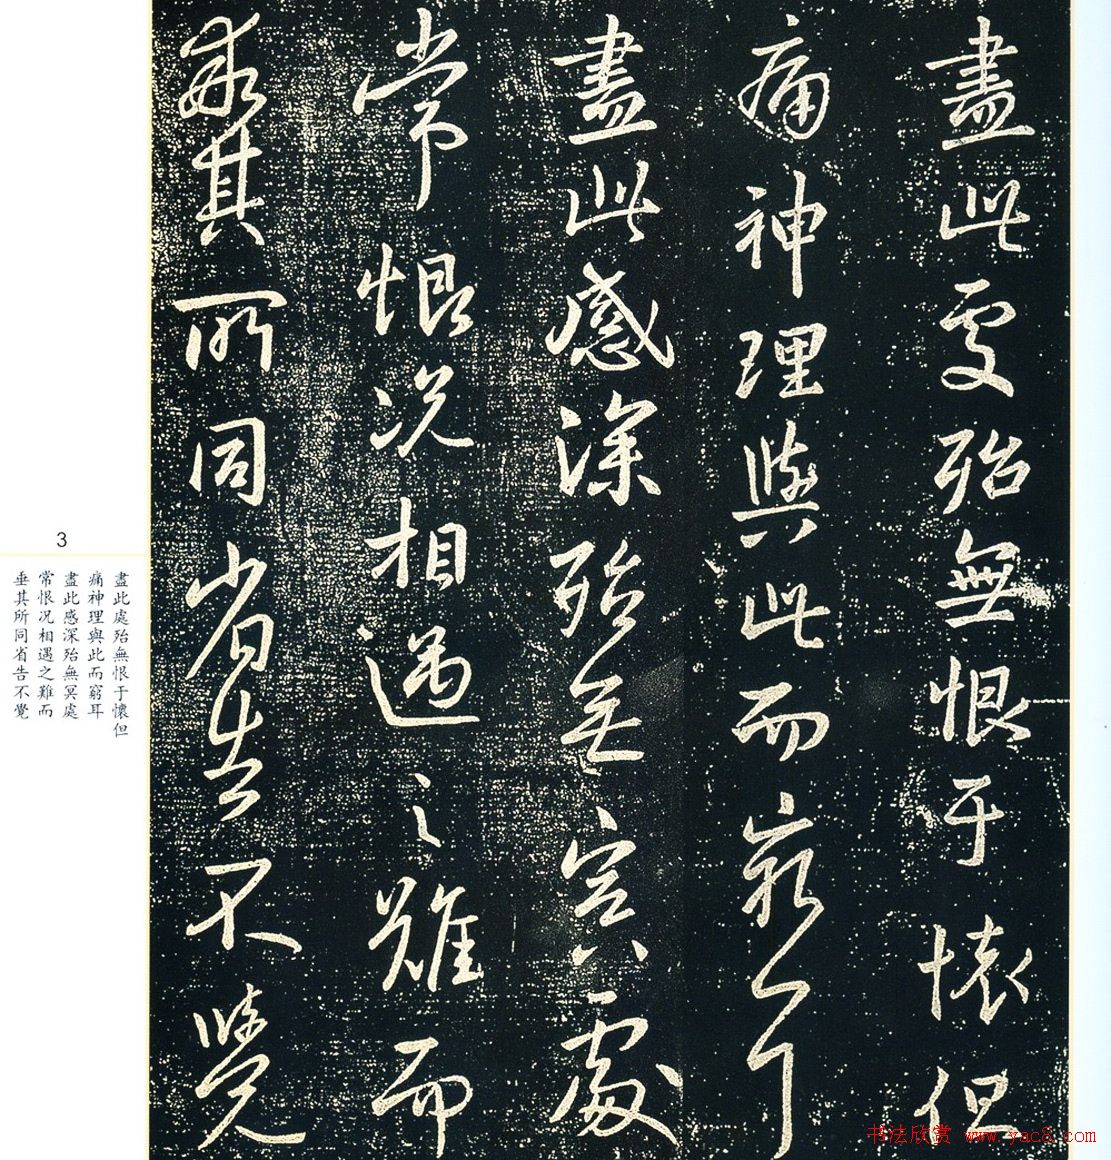 盡此處殆無恨于懷但
痛神理與此而窮耳
盡此感深殆無冥處
常恨况相遇之難而
垂其所同省告不覺
3
盡此處殆無恨于懷但
痛神理與此而窮耳
盡此感深殆無冥處
常恨况相遇之難而
垂其所同省告不覺
书法欣赏 www.yac8.com